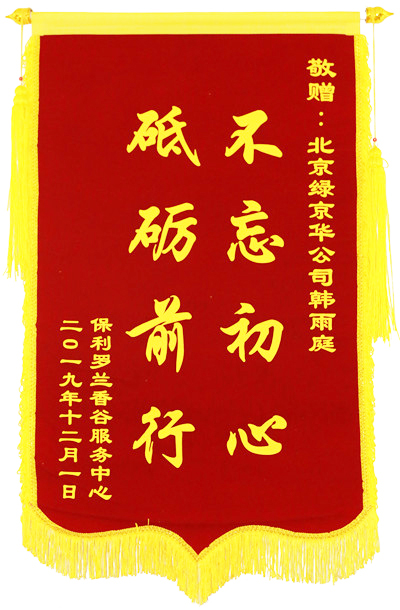 敬赠：北京绿京华公司韩雨庭
不忘初心
砥砺前行
保利罗兰香谷服务中心
二〇一九年十二月一日